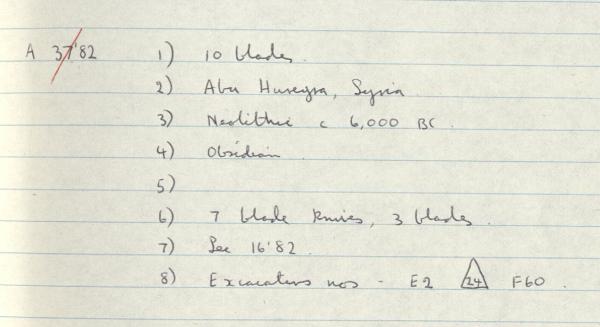 A 37'82 1) 10 blades.
2) Abu Hureyra, Syria
3) Neolithic c 6,000 BC.
4) Obsidian.
5)
6) 7 blade knives, 3 blades.
7) See 16'82.
8) Excavators nos - E2 24 F60.